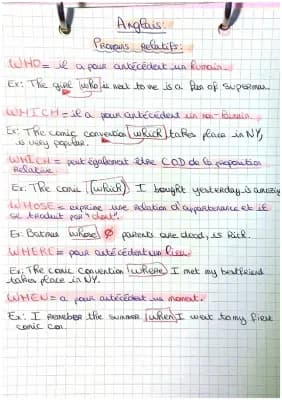 Anglais:
Pronoms relatifs:
WHO = il a pour antécédent un humain.
Ex: The girl who is next to me is a fan of superman.
WHICH = il a pour antécédent un non-humain.
Ex: The comic convention which takes place in NY,
is very popular.
WHICH = peut également être COD de la proposition
relative.
Ex: The comic (which) I bought yesterday is amazing
WHOSE = exprime une relation d'appartenance et il
se traduit par "dont".
Ex: Batman whose Ø parents are dead, is Rich.
WHERE = pour antécédent un lieu.
Ex: The comic convention where I met my bestfriend
takes place in NY.
WHEN = a pour antécédent un moment.
Ex: I remember the summer when I went to my first
comic con.